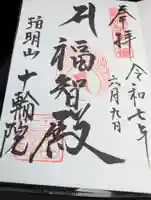 奉拝
令和七年
六月九日
福智殿
指明山
十輪院